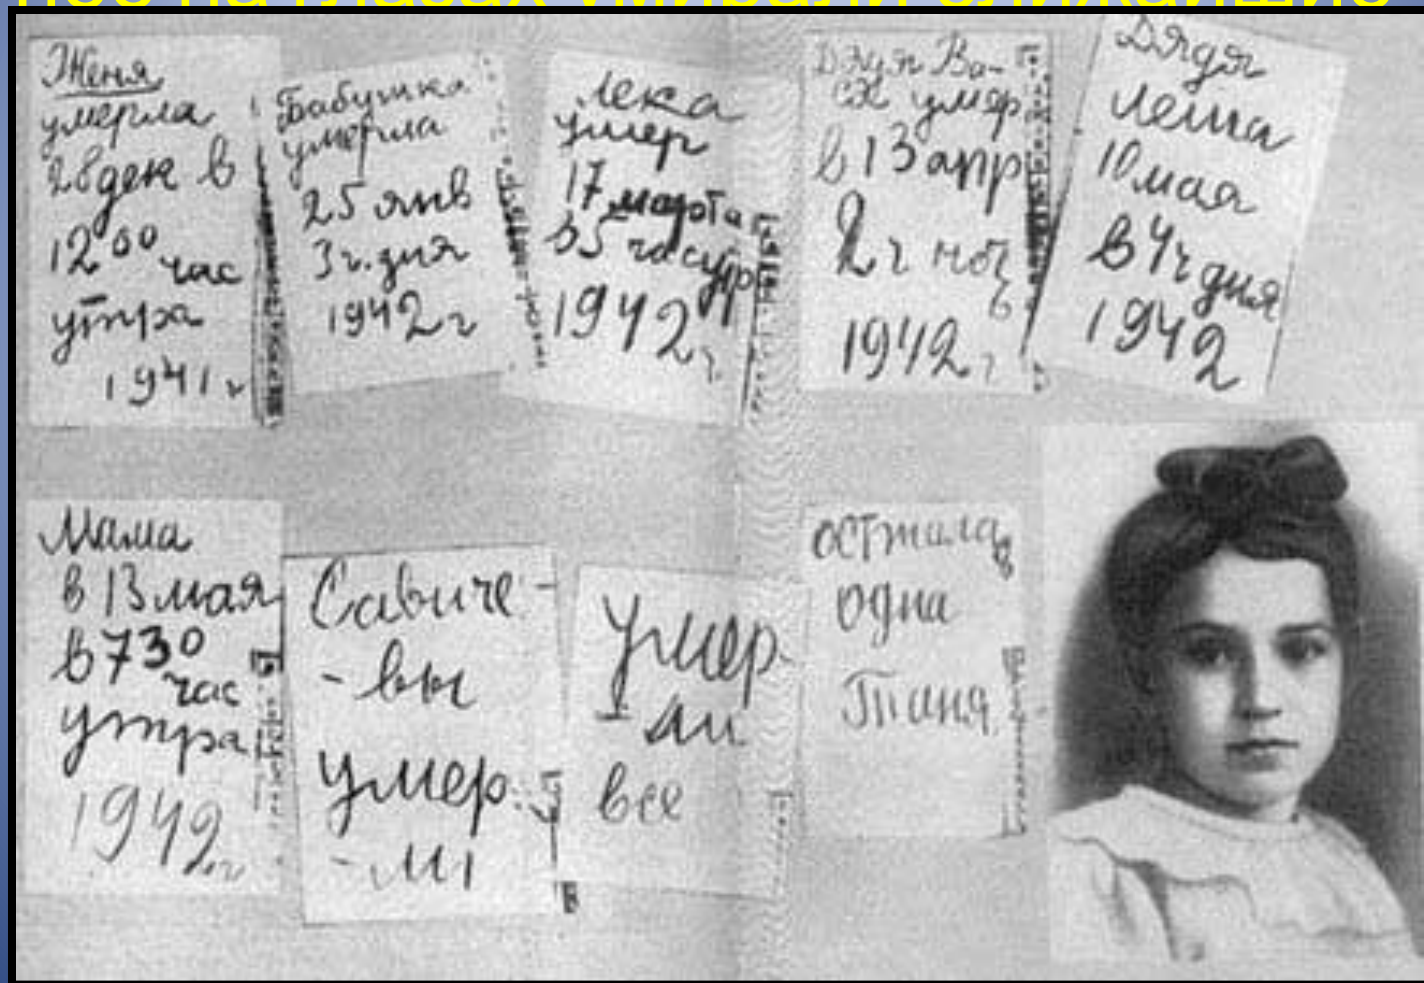 нее на глазах умирали ближайшие
Женя
умерла
28 дек в
12 00 час
утра
1941 г
Бабушка
умерла
25 янв
3 ч. дня
1942 г
Лека
умер
17 марта
в 5 час утр
1942 г
Дядя Ва-
ся умер
в 13 апр
2 ч ноч
ь
1942 г
Дядя
Леша
10 мая
в 4 ч дня
1942
Мама
в 13 мая
в 7 30
час
утра
1942 г
Савиче-
-вы
умер
-ли
Умер-
-ли
все
осталась
одна
Таня